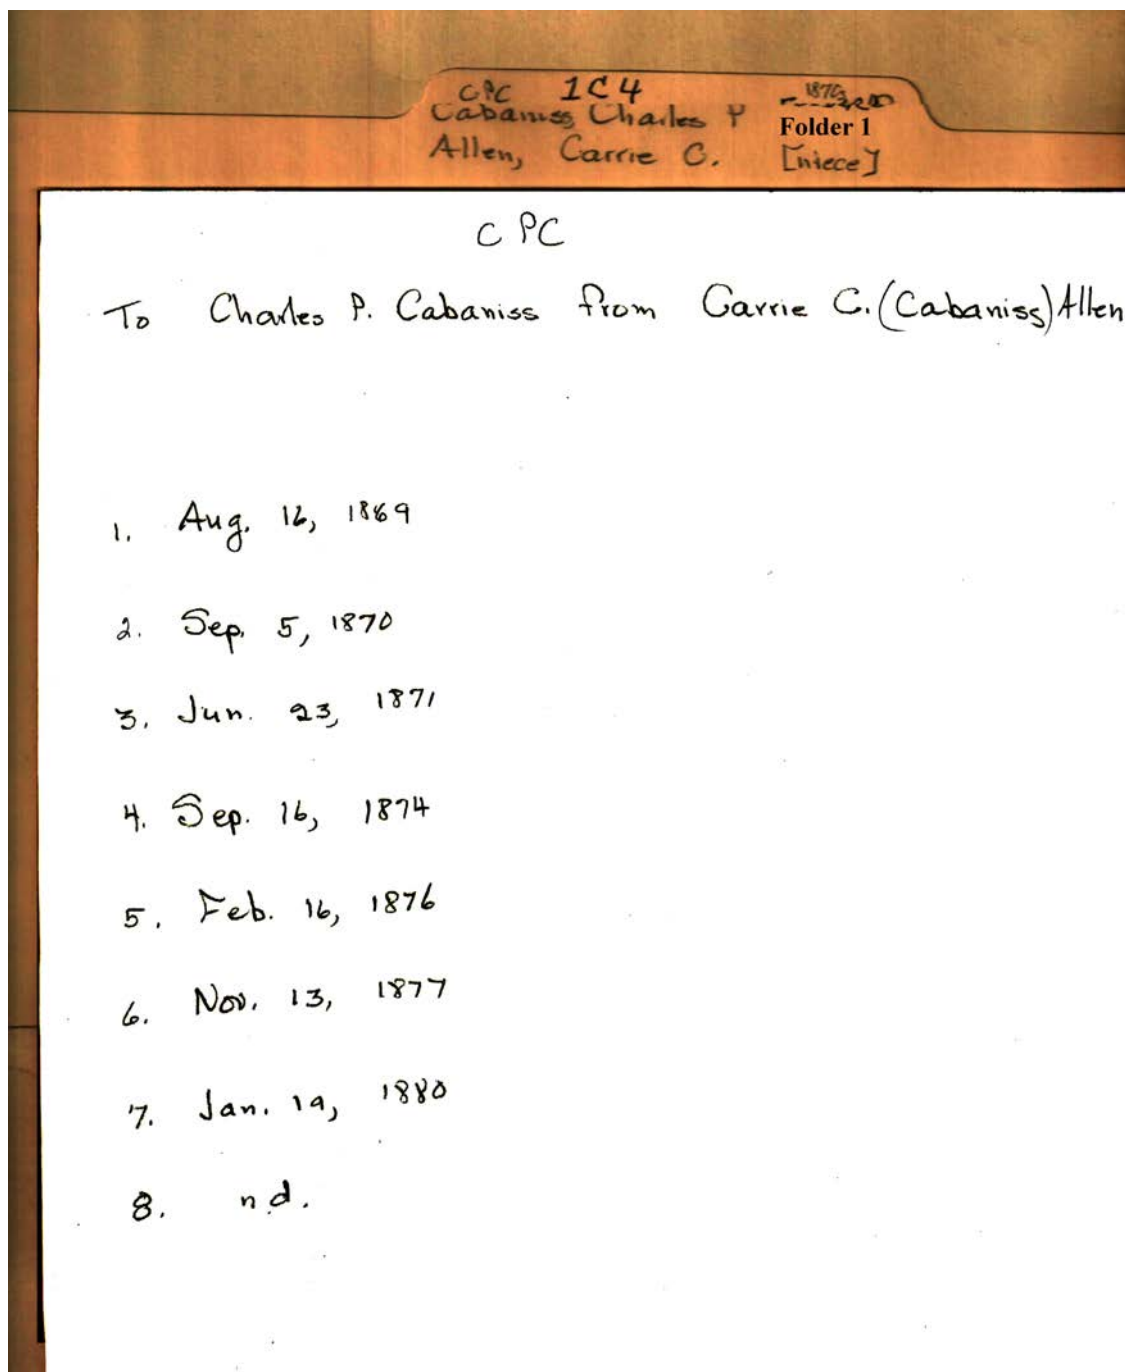 CPC 1C4
Cabaniss Charles P Folder 1
Allen, Carrie C. [niece]
CPC
To Charles P. Cabaniss from Carrie C. (Cabaniss) Allen
1. Aug. 16, 1869
2. Sep. 5, 1870
3. Jun. 23, 1871
4. Sep. 16, 1874
5. Feb. 16, 1876
6. Nov. 13, 1877
7. Jan. 19, 1880
8. n.d.